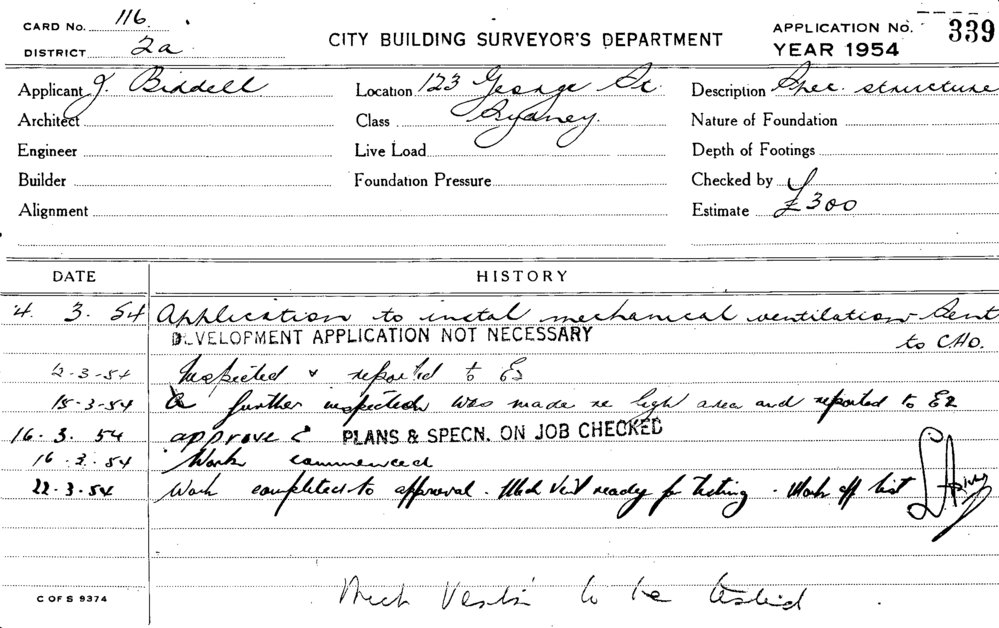 CARD No. 116
DISTRICT 2a
CITY BUILDING SURVEYOR'S DEPARTMENT
APPLICATION No. 339
YEAR 1954
Applicant J. Biddell Location 123 George St. Description Spec. structure
Architect Class Sydney. Nature of Foundation
Engineer Live Load Depth of Footings
Builder Foundation Pressure Checked by
Alignment Estimate £300
DATE HISTORY
4. 3. 54 Application to instal mechanical ventilation Sent
DEVELOPMENT APPLICATION NOT NECESSARY
to CHO.
2-3-54 Inspected & reported to
15-3-54 A further inspection was made re light area and reported to E2
16. 3. 54 approved PLANS & SPECN. ON JOB CHECKED
16. 3. 54 Work commenced
22-3-54 Work completed to approval. Mech Vent ready for testing. Mark off list
C OF S 9374
Mech Vent'n to be tested